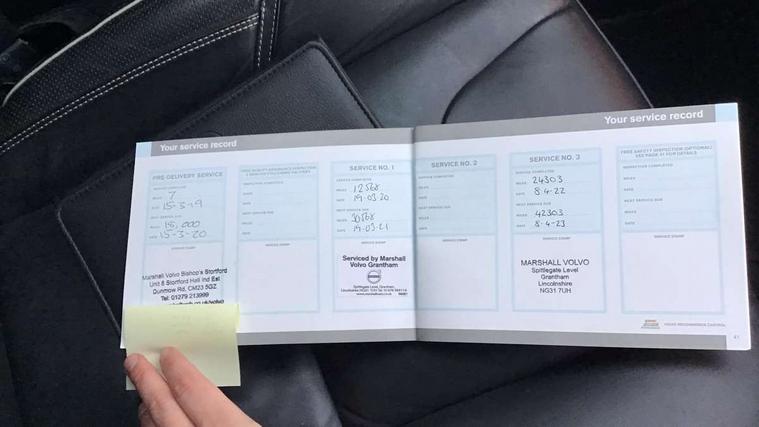 Your service record
PRE-DELIVERY SERVICE
MILES 7
DATE 15-3-19
NEXT SERVICE DUE
MILES 15,000
DATE 15-3-20
SERVICE STAMP
Marshall Volvo Bishop's Stortford
Unit 8 Stortford Hall Ind Est
Dunmow Rd, CM23 5GZ
Tel: 01279 213999
INSPECTION COMPLETED
MILES
DATE
NEXT SERVICE DUE
MILES
DATE
SERVICE STAMP
SERVICE NO. 1
SERVICE COMPLETED
MILES 12568
DATE 19.03.20
NEXT SERVICE DUE
MILES 30568
DATE 19-03-21
SERVICE STAMP
Serviced by Marshall
Volvo Grantham
Your service record
SERVICE NO. 2
SERVICE COMPLETED
MILES
DATE
NEXT SERVICE DUE
MILES
DATE
SERVICE STAMP
SERVICE NO. 3
SERVICE COMPLETED
MILES 24303
DATE 8.4.22
NEXT SERVICE DUE
MILES 42303
DATE 8.4.23
SERVICE STAMP
MARSHALL VOLVO
Spittlegate Level
Grantham
Lincolnshire
NG31 7UH
FREE SAFETY INSPECTION (OPTIONAL)
SEE PAGE 41 FOR DETAILS
INSPECTION COMPLETED
MILES
DATE
NEXT SERVICE DUE
MILES
DATE
SERVICE STAMP
VOLVO RECOMMENDS CASTROL
41